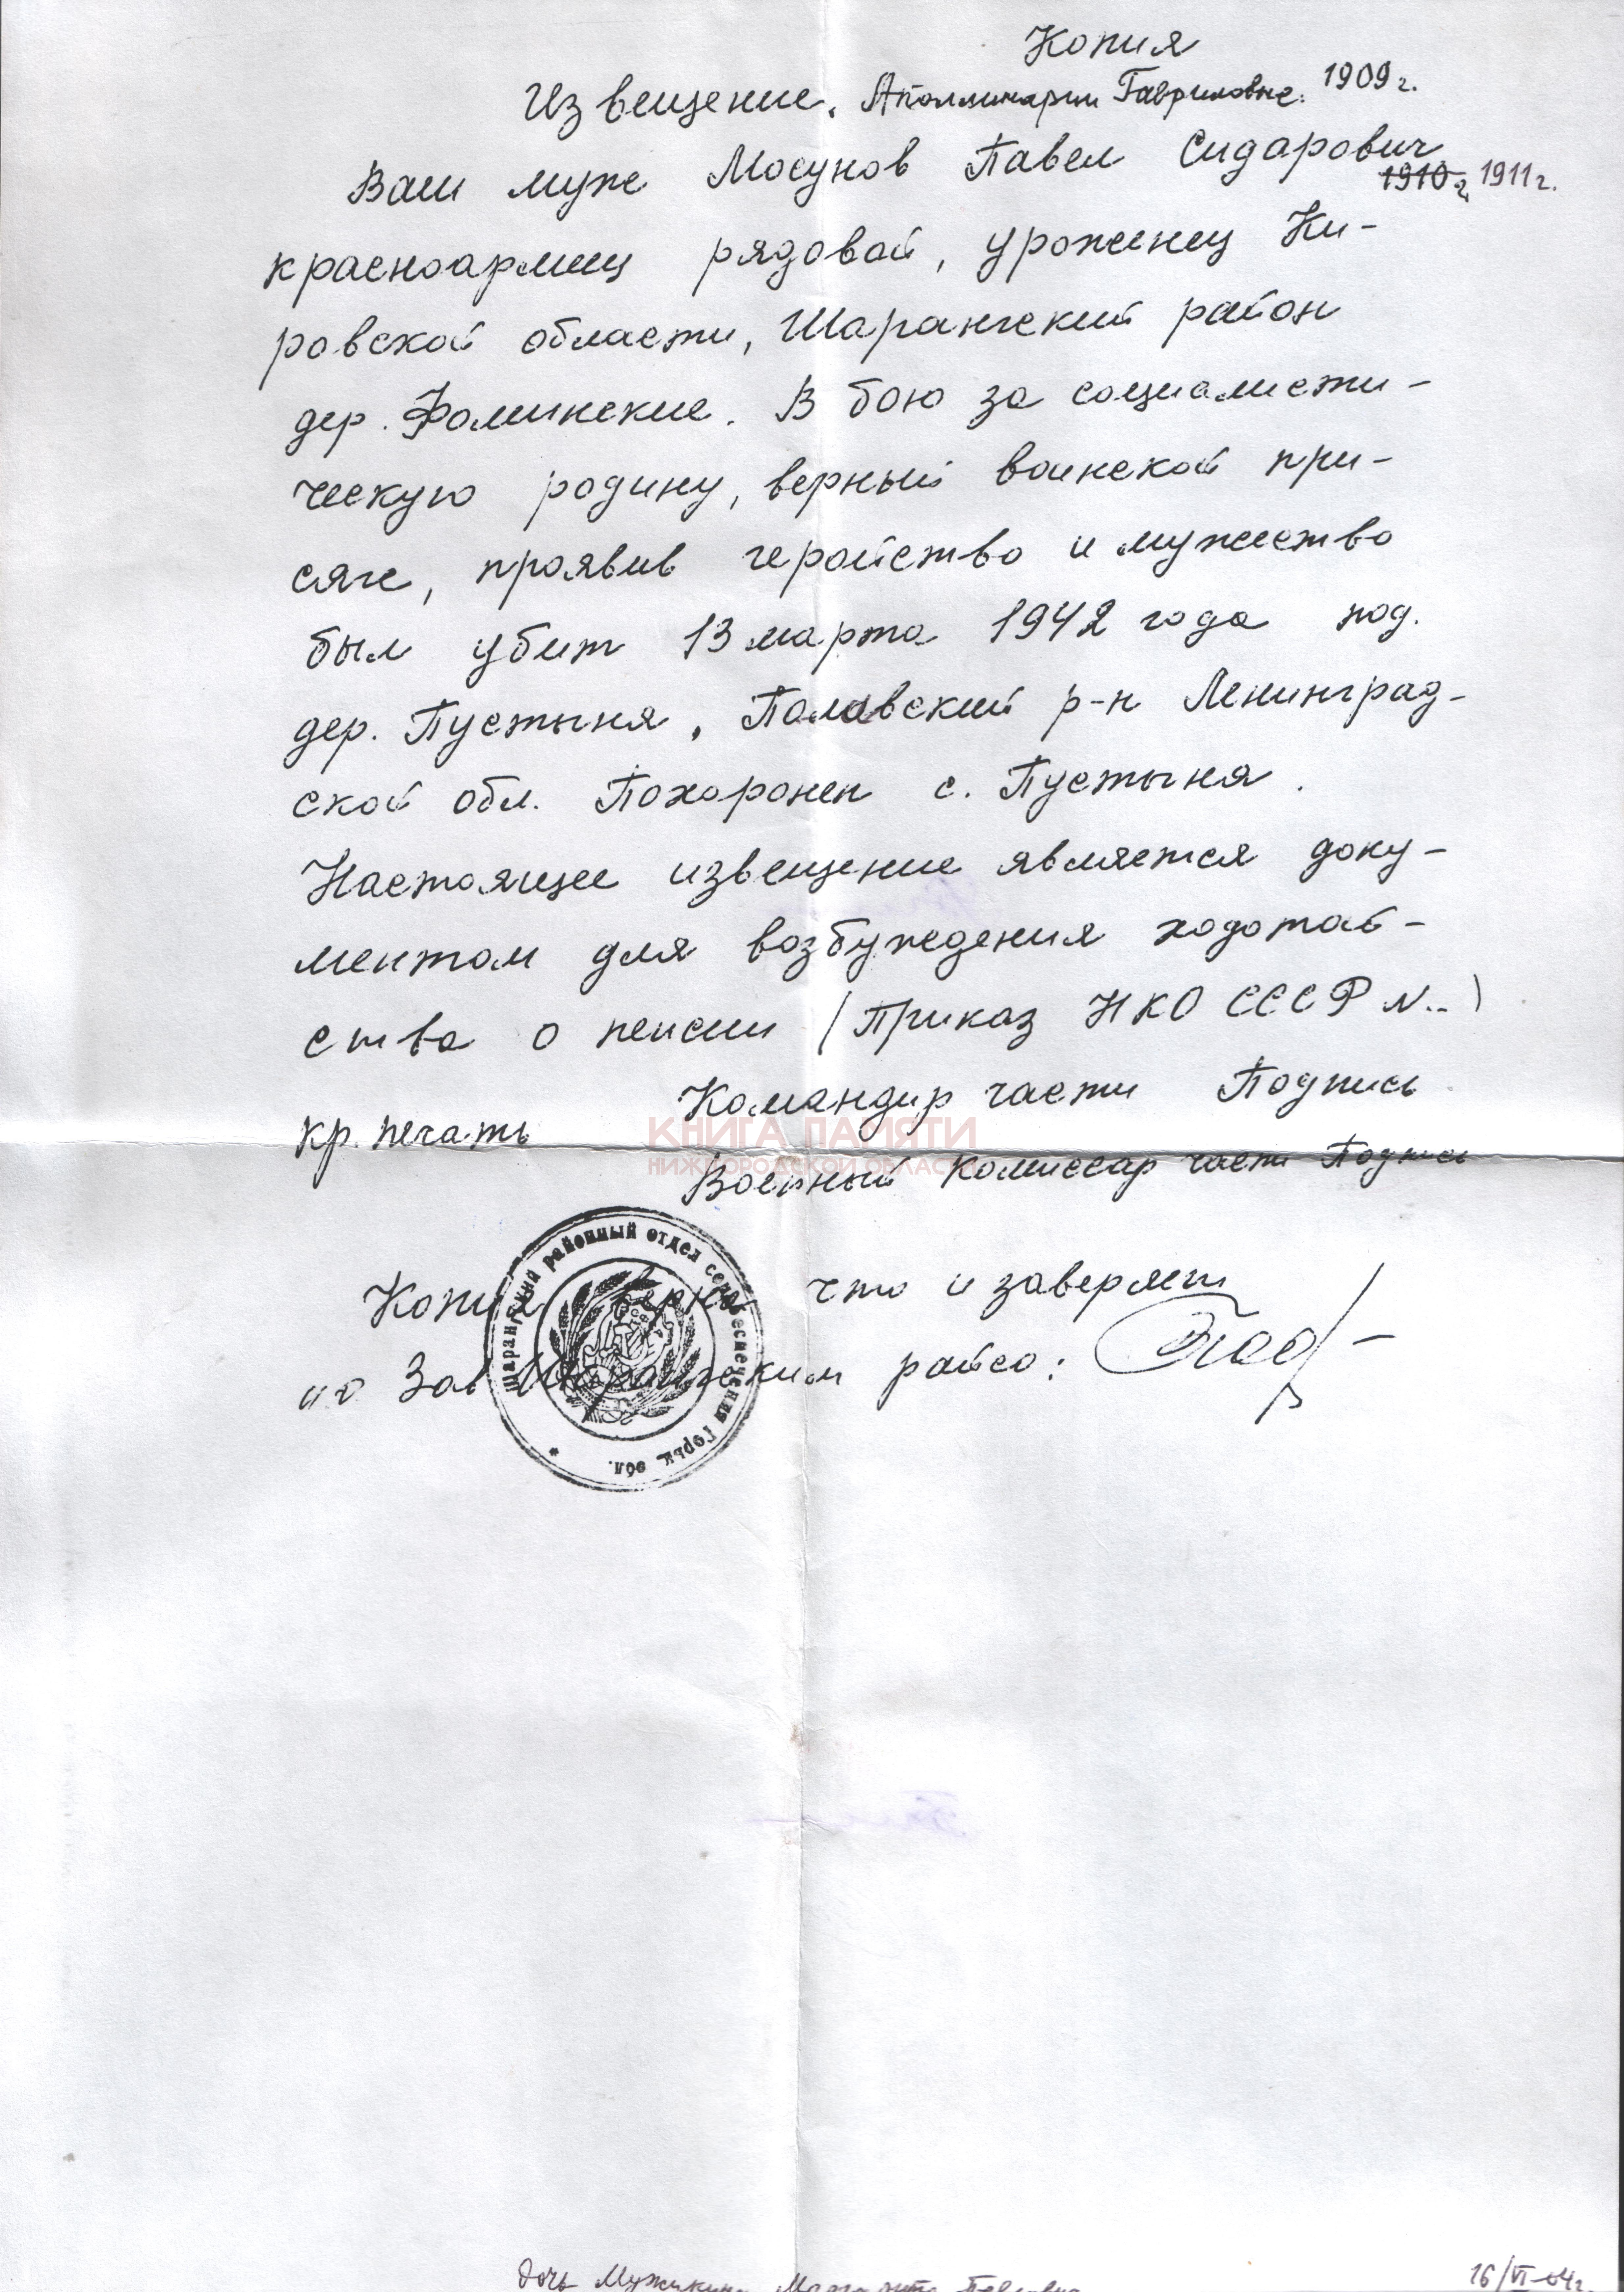 Копия
Извещение. Аполлинарии Гавриловне. 1909 г.
Ваш муж Мосунов Павел Сидарович
1910 г. 1911 г.
красноармеец рядовой, уроженец Ки-
ровской области, Шарангский район
дер. Фоминские. В бою за социалисти-
ческую родину, верный воинской при-
сяге, проявив геройство и мужество
был убит 13 марта 1942 года под.
дер. Пустыня, Полавский р-н Ленинград-
ской обл. Похоронен с. Пустыня.
Настоящее извещение является доку-
ментом для возбуждения ходотай-
ства о пенсии (Приказ НКО СССР N..)
Командир части Подпись
кр. печать
КНИГА ПАМЯТИ
НИЖЕГОРОДСКОЙ ОБЛАСТИ
Военный Комиссар части Подпись
Шарангский районный отдел соцобеспечения Горьк. обл. *
Копия верна что и заверяет
Зав Шарангским райсо:
дочь Маргарита Павловна
16/VI-04г.